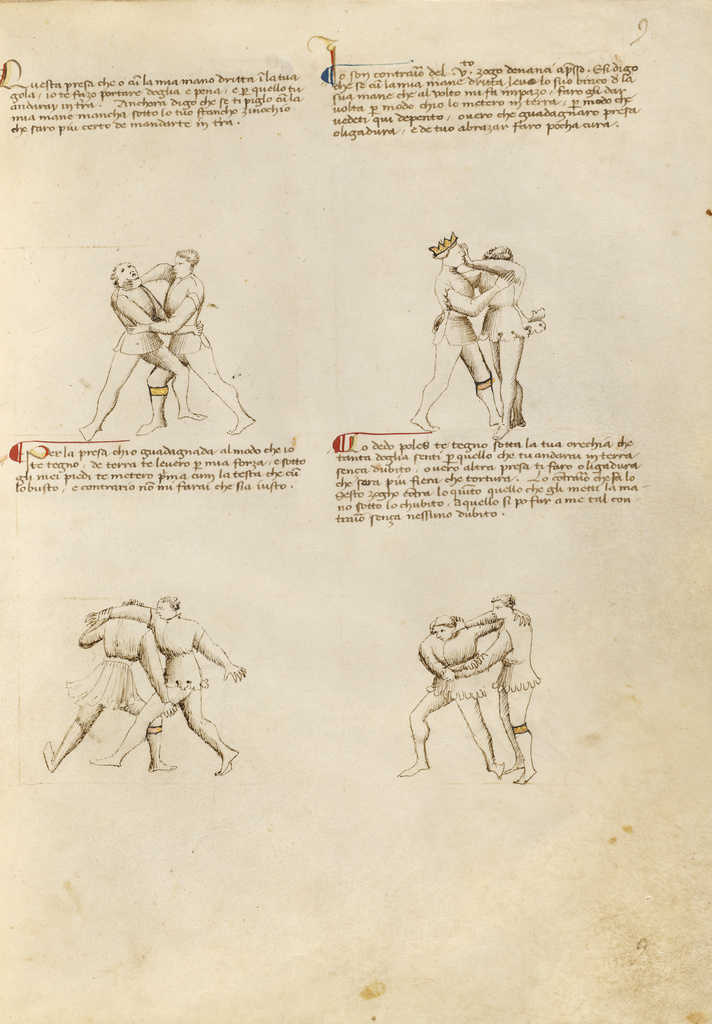 9
Questa presa che o cu la mia mano dritta i la tua
gola, io te fazo portare doglia e pena, e p quello tu
andarai in tra. Anchora digo che se ti piglo cu la
mia mane mancha sotto lo tuo stancho zinochio
che saro piu certo de mandarte in tra.
Io son contrario del v.to zogo denanci apsso. E si digo
che se cu la mia mane dritta levo lo suo braço d la
sua mane che al volto mi fa impazo, faro gli dar
volta p modo chio lo metero in terra, p modo che
vedeti qui depento, overo che guadagnaro presa
o ligadura, e de tuo abrazar faro pocha cura.
Per la presa chio guadagnada al modo che io
te tegno, de terra te levero p mia forza, e sotto
gli mei piedi te metero pma cum la testa che cu
lo busto, e contrario no mi farai che sia iusto.
Lo dedo poles te tegno sotta la tua orechia che
tanta doglia senti p quello che tu andarai in terra
senza dubito, overo altra presa ti faro o ligadura
che sara piu fiera che tortura. Lo cotrario che fa lo
sesto zogho cotra lo quito quello che gli mette la ma-
no sotto lo chubito, aquello si po far a me tal con-
trario senza nessuno dubito.
9